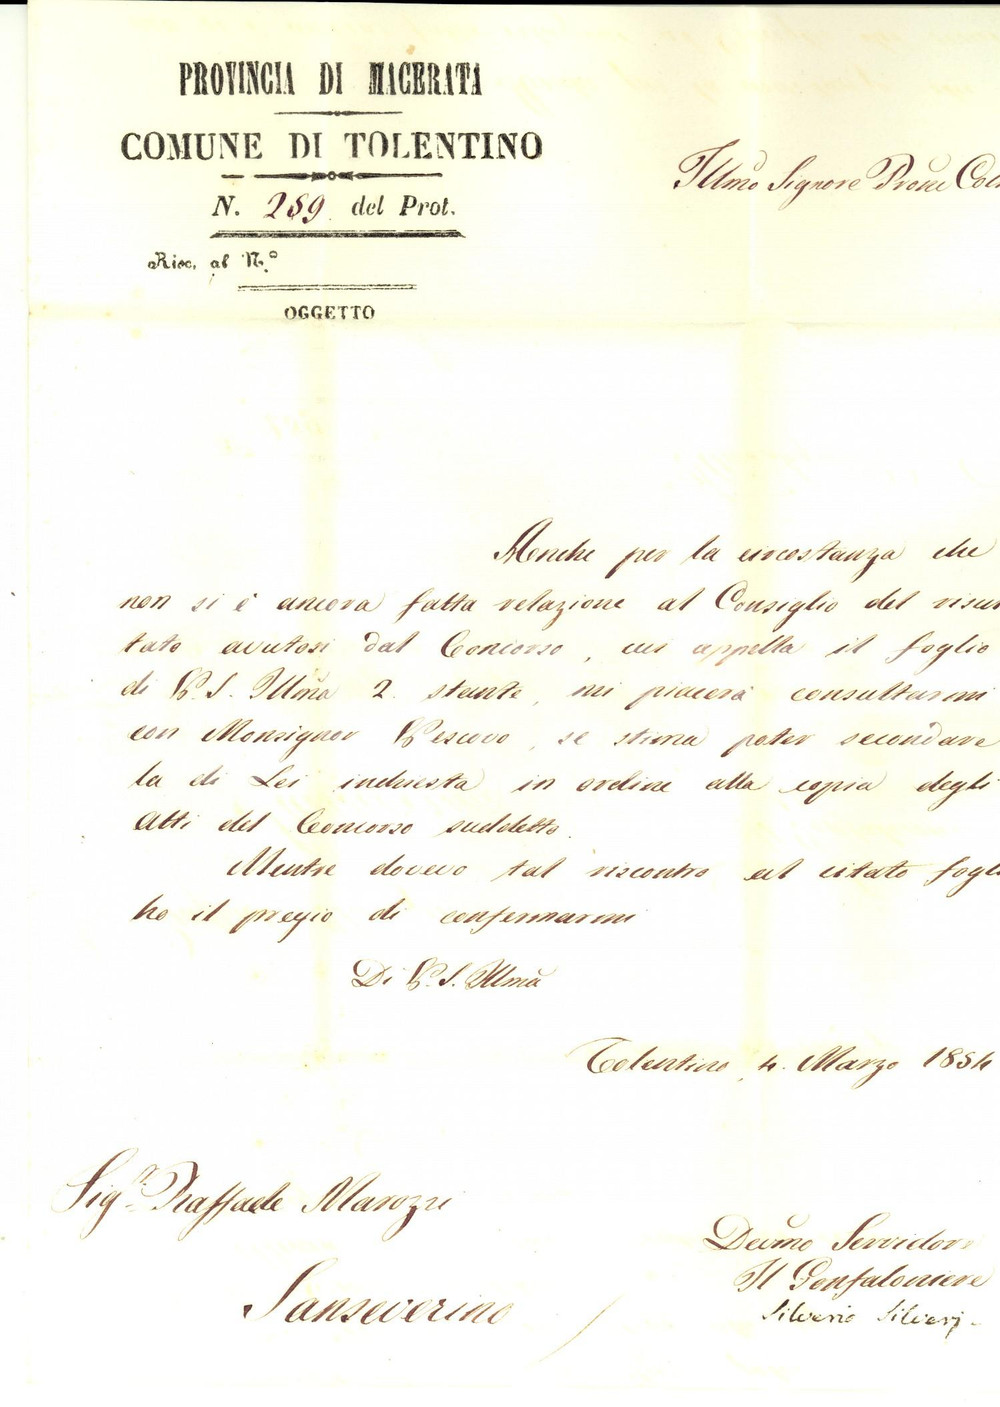 PROVINCIA DI MACERATA
COMUNE DI TOLENTINO
N. 289 del Prot.
Risc. al N.º
OGGETTO
Illmo Signore Prone
Anche per la circostanza che
non si è ancora fatta relazione al Consiglio del risul
tato avutosi dal Concorso, cui appella il foglio
di V. S. Illma 2 stante, mi piacerà consultarmi
con Monsignor Vescovo, se stima poter secondare
la di Lei inchiesta in ordine alla copia degli
Atti del Concorso suddetto.
Mentre dovevo tal riscontro al citato fogli
ho il pregio di confermarmi
Di V. S. Illma
Tolentino 4. Marzo 1854
Sigr. Raffaele Marozzi
Sanseverino
Devmo Servidore
Il Gonfaloniere
Silverio Silverj